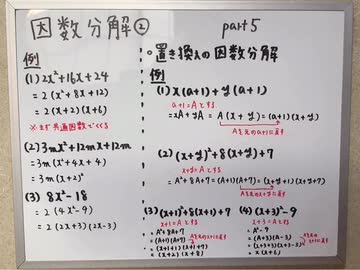 因数分解②
part5
例
(1) 2x²+16x+24
= 2(x²+8x+12)
= 2(x+2)(x+6)
※まず共通因数でくくる
(2) 3mx²+12mx+12m
= 3m(x²+4x+4)
= 3m(x+2)²
(3) 8x²-18
= 2(4x²-9)
= 2(2x+3)(2x-3)
○置き換えの因数分解
例
(1) x(a+1)+y(a+1)
a+1=Aとする
= xA+yA = A(x+y) = (a+1)(x+y)
Aを元のa+1に戻す
(2) (x+y)²+8(x+y)+7
x+y=Aとする
= A²+8A+7 = (A+1)(A+7) = (x+y+1)(x+y+7)
Aを元のx+yに戻す
(3) (x+1)²+8(x+1)+7
x+1=Aとする
= A²+8A+7
= (A+1)(A+7)
= (x+1+1)(x+1+7)
= (x+2)(x+8)
(4) (x+3)²-9
x+3=Aとする
= A²-9
= (A+3)(A-3)
= (x+3+3)(x+3-3)
= x(x+6)